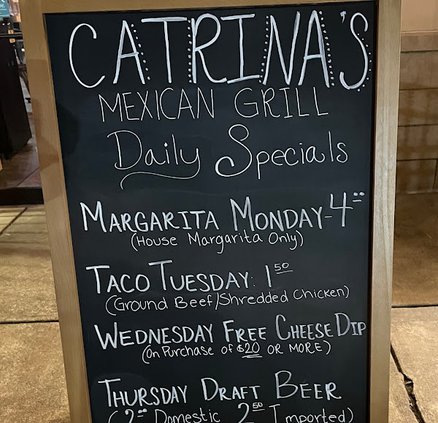 CATRINA'S
MEXICAN GRILL
Daily Specials
MARGARITA MONDAY-4⁰⁰
(House Margarita Only)
TACO TUESDAY: 1⁵⁰
(Ground Beef/Shredded Chicken)
WEDNESDAY FREE CHEESE DIP
(On Purchase of $20 OR MORE)
THURSDAY DRAFT BEER
(2⁰⁰ Domestic 2⁵⁰ Imported)